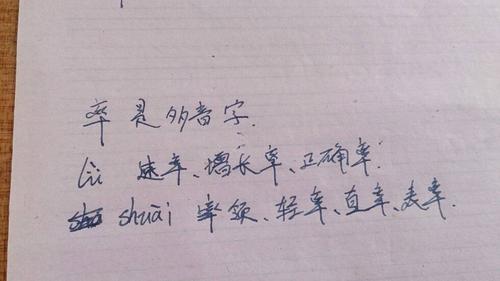 率是多音字.
lü 速率、增长率、正确率.
shuài 率领、轻率、直率、表率.